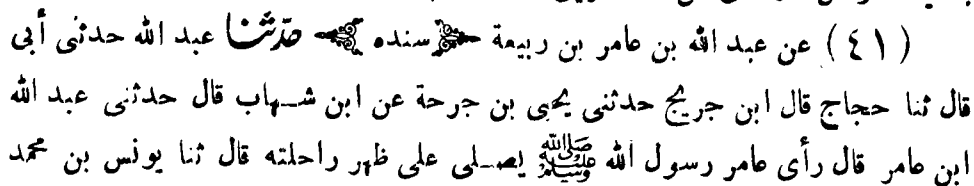 (٤١) عن عبد الله بن عامر بن ربيعة سنده حدثنا عبد الله حدثنى أبى
قال ثنا حجاج قال ابن جريج حدثنى يحيى بن جرحة عن ابن شهاب قال حدثنى عبد الله
ابن عامر قال رأى عامر رسول الله صلى الله عليه وسلم يصلى على ظهر راحلته قال ثنا يونس بن محمد